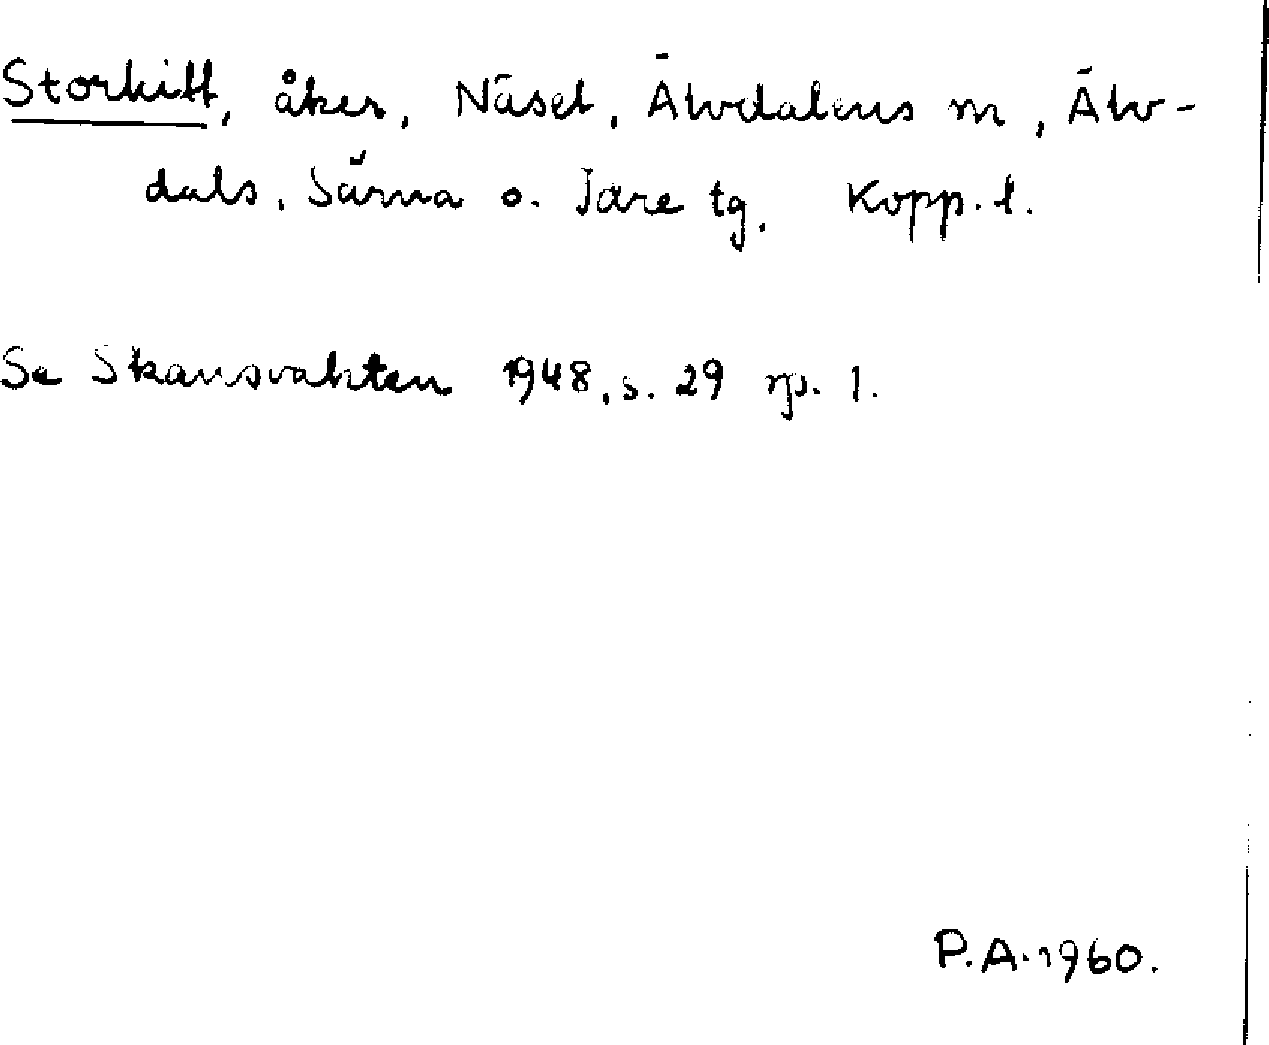 Storkitt, åker, Näset, Älvdalens sn, Älv-
dals, Särna o. Idre tg. Kopp. l.
Se Skansvakten 1948, s. 29 sp. 1.
P.A. 1960.